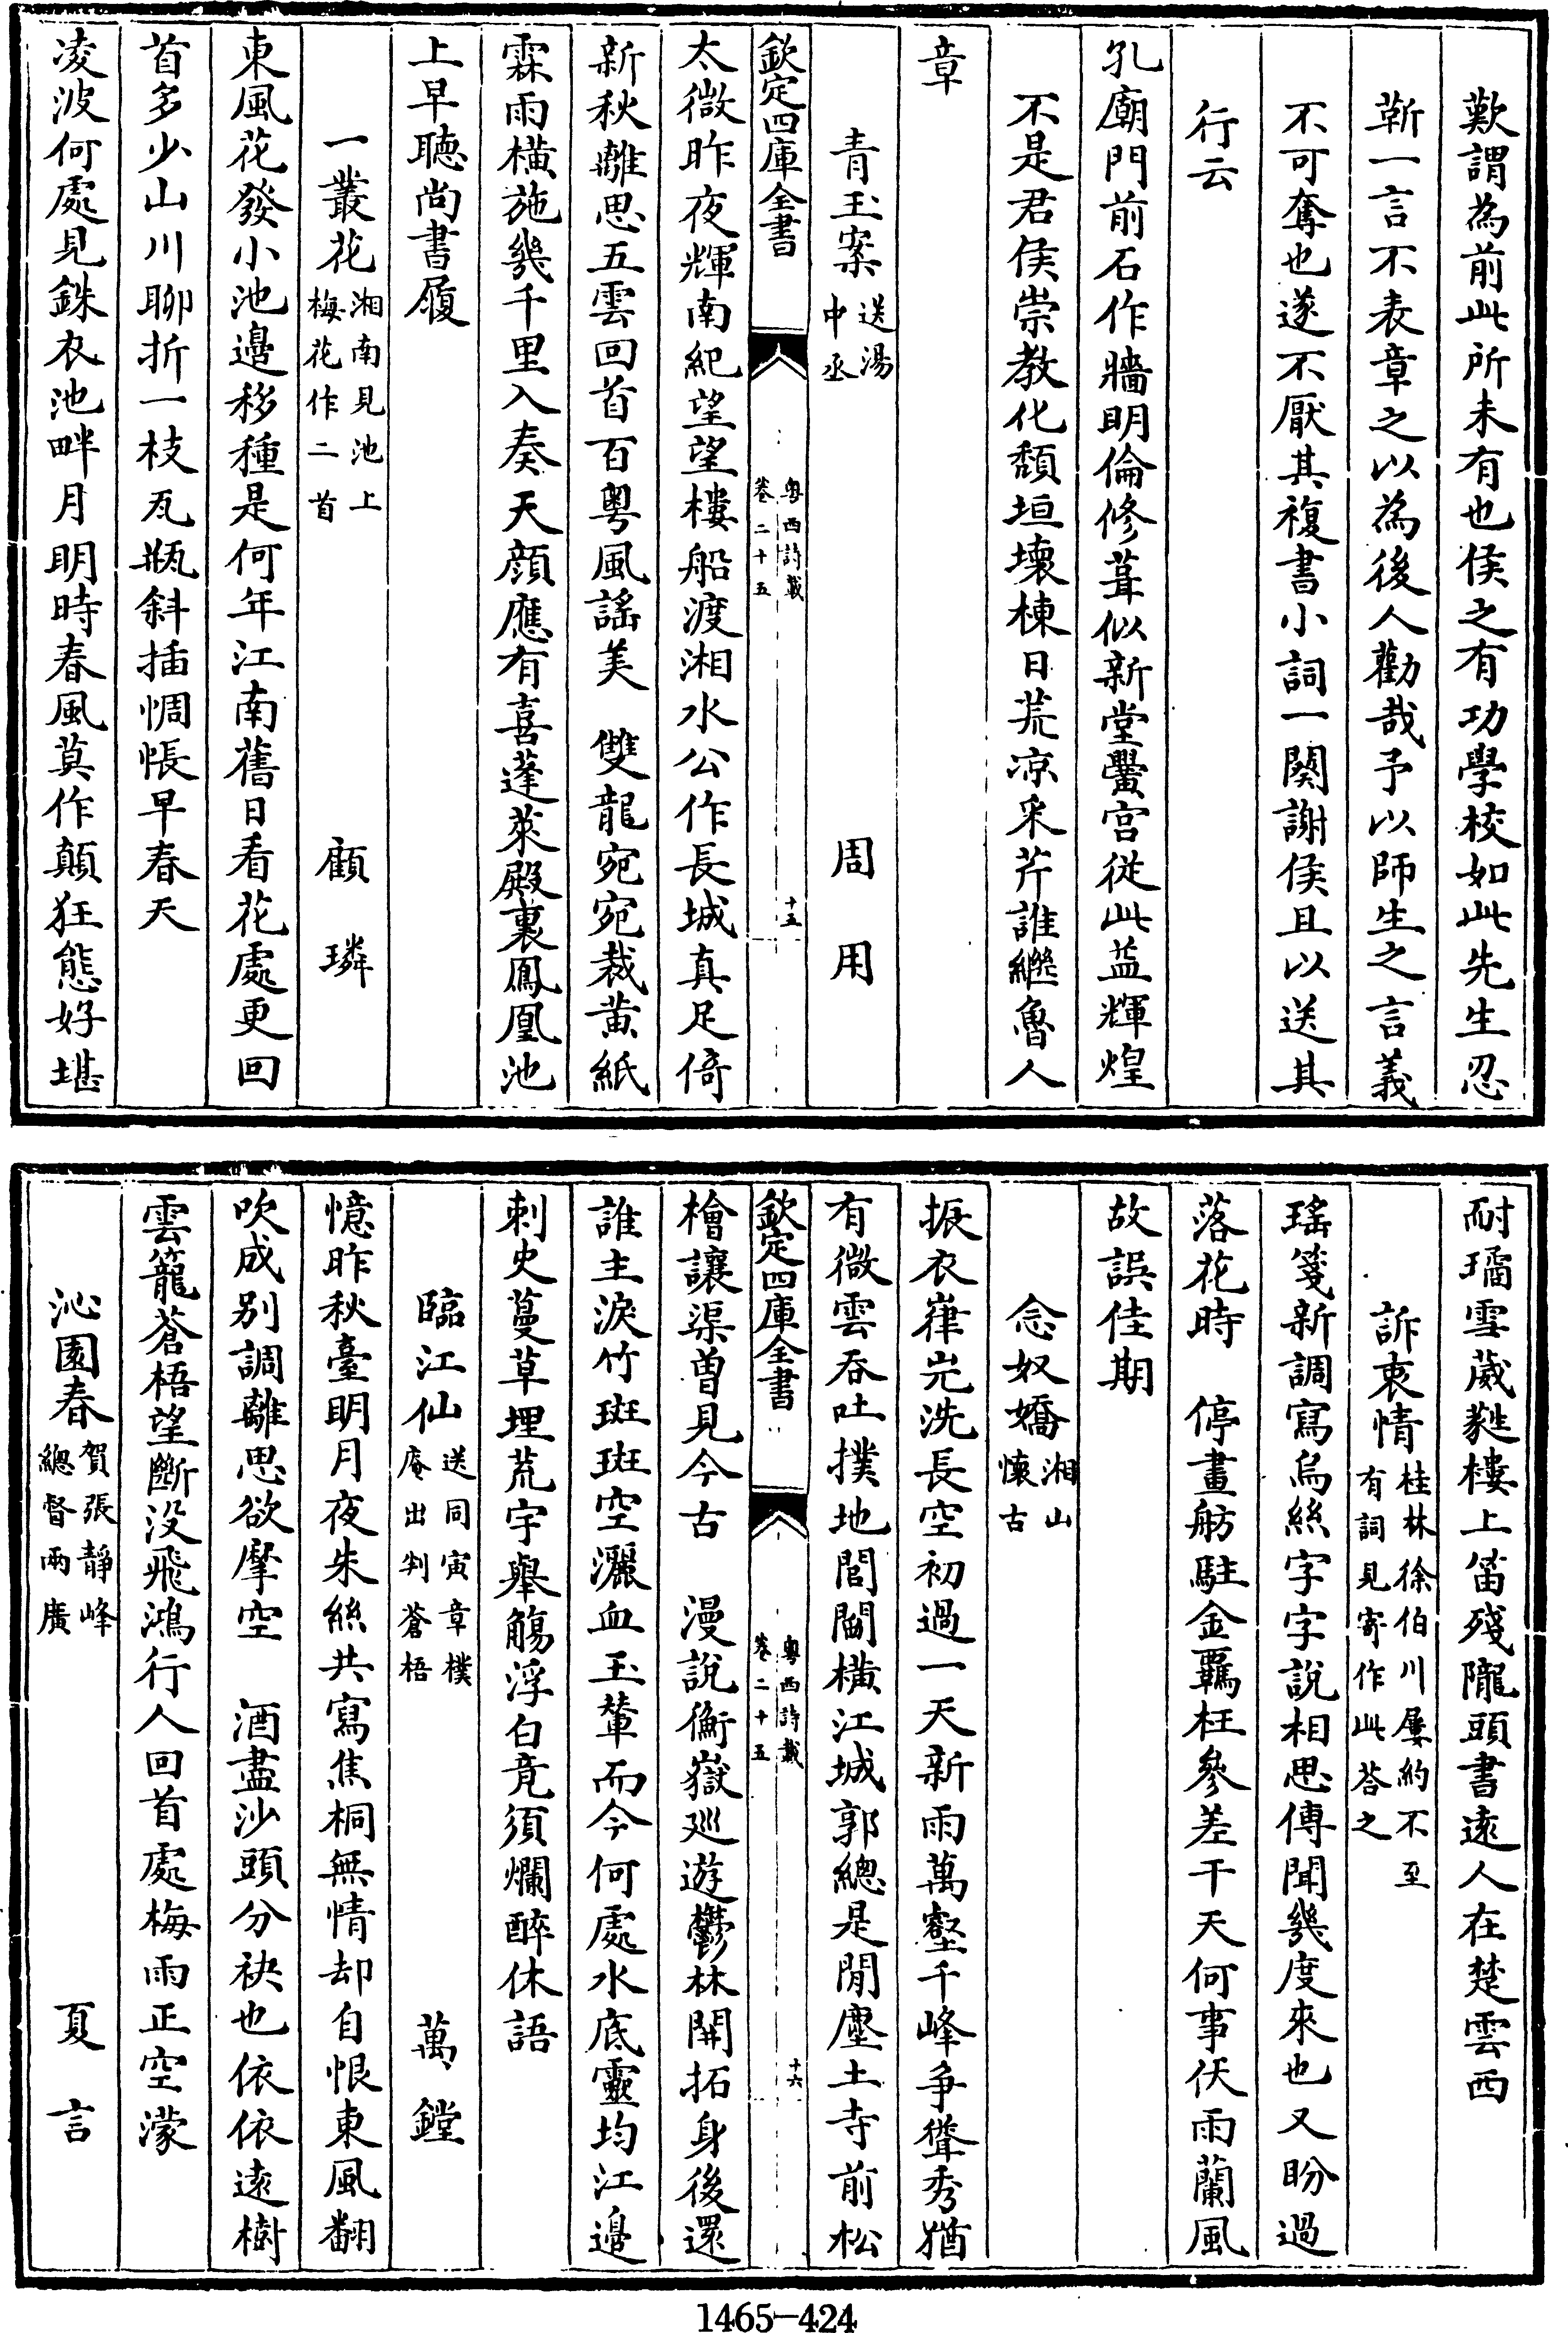 歎謂為前此所未有也侯之有功學校如此先生忍
靳一言不表章之以為後人勸哉予以師生之言義
不可奪也遂不厭其複書小詞一闋謝侯且以送其
行云
孔廟門前石作牆明倫修葺似新堂黌宮從此益輝煌
不是君侯崇教化頽垣壞棟日荒凉采芹誰繼魯人
章
青玉案送湯中丞　周用
欽定四庫全書　粵西詩載卷二十五　十五
太微昨夜輝南紀望望樓船渡湘水公作長城真足倚
新秋離思五雲回首百粵風謠美　雙龍宛宛裁黃紙
霖雨橫施幾千里入奏天顔應有喜蓬萊殿裏鳳凰池
上早聽尚書履
一叢花湘南見池上梅花作二首　顧璘
東風花發小池邉移種是何年江南舊日看花處更回
首多少山川聊折一枝瓦瓶斜插惆悵早春天
凌波何處見銖衣池畔月明時春風莫作顛狂態好堪
耐璚雪葳蕤樓上笛殘隴頭書遠人在楚雲西
訴衷情桂林徐伯川屢約不至有詞見寄作此答之
瑤箋新調寫烏絲字字說相思傳聞幾度來也又盼過
落花時　停畫舫駐金覊枉參差干天何事伏雨蘭風
故誤佳期
念奴嬌湘山懷古
振衣嵂屼洗長空初過一天新雨萬壑千峰争聳秀猶
有微雲吞吐撲地閭閻横江城郭總是閒塵土寺前松
欽定四庫全書　粵西詩載卷二十五　十六
檜讓渠曾見今古　漫說衡嶽廵遊鬱林開拓身後還
誰主淚竹斑斑空灑血玉輦而今何處水底靈均江邉
刺史蔓草埋荒宇舉觴浮白竟須爛醉休語
臨江仙送同寅章樸庵出判蒼梧　萬鏜
憶昨秋臺明月夜朱絲共寫焦桐無情却自恨東風翻
吹成别調離思欲摩空　酒盡沙頭分袂也依依遠樹
雲籠蒼梧望斷没飛鴻行人回首處梅雨正空濛
沁園春賀張靜峰總督兩廣　夏言
1465-424